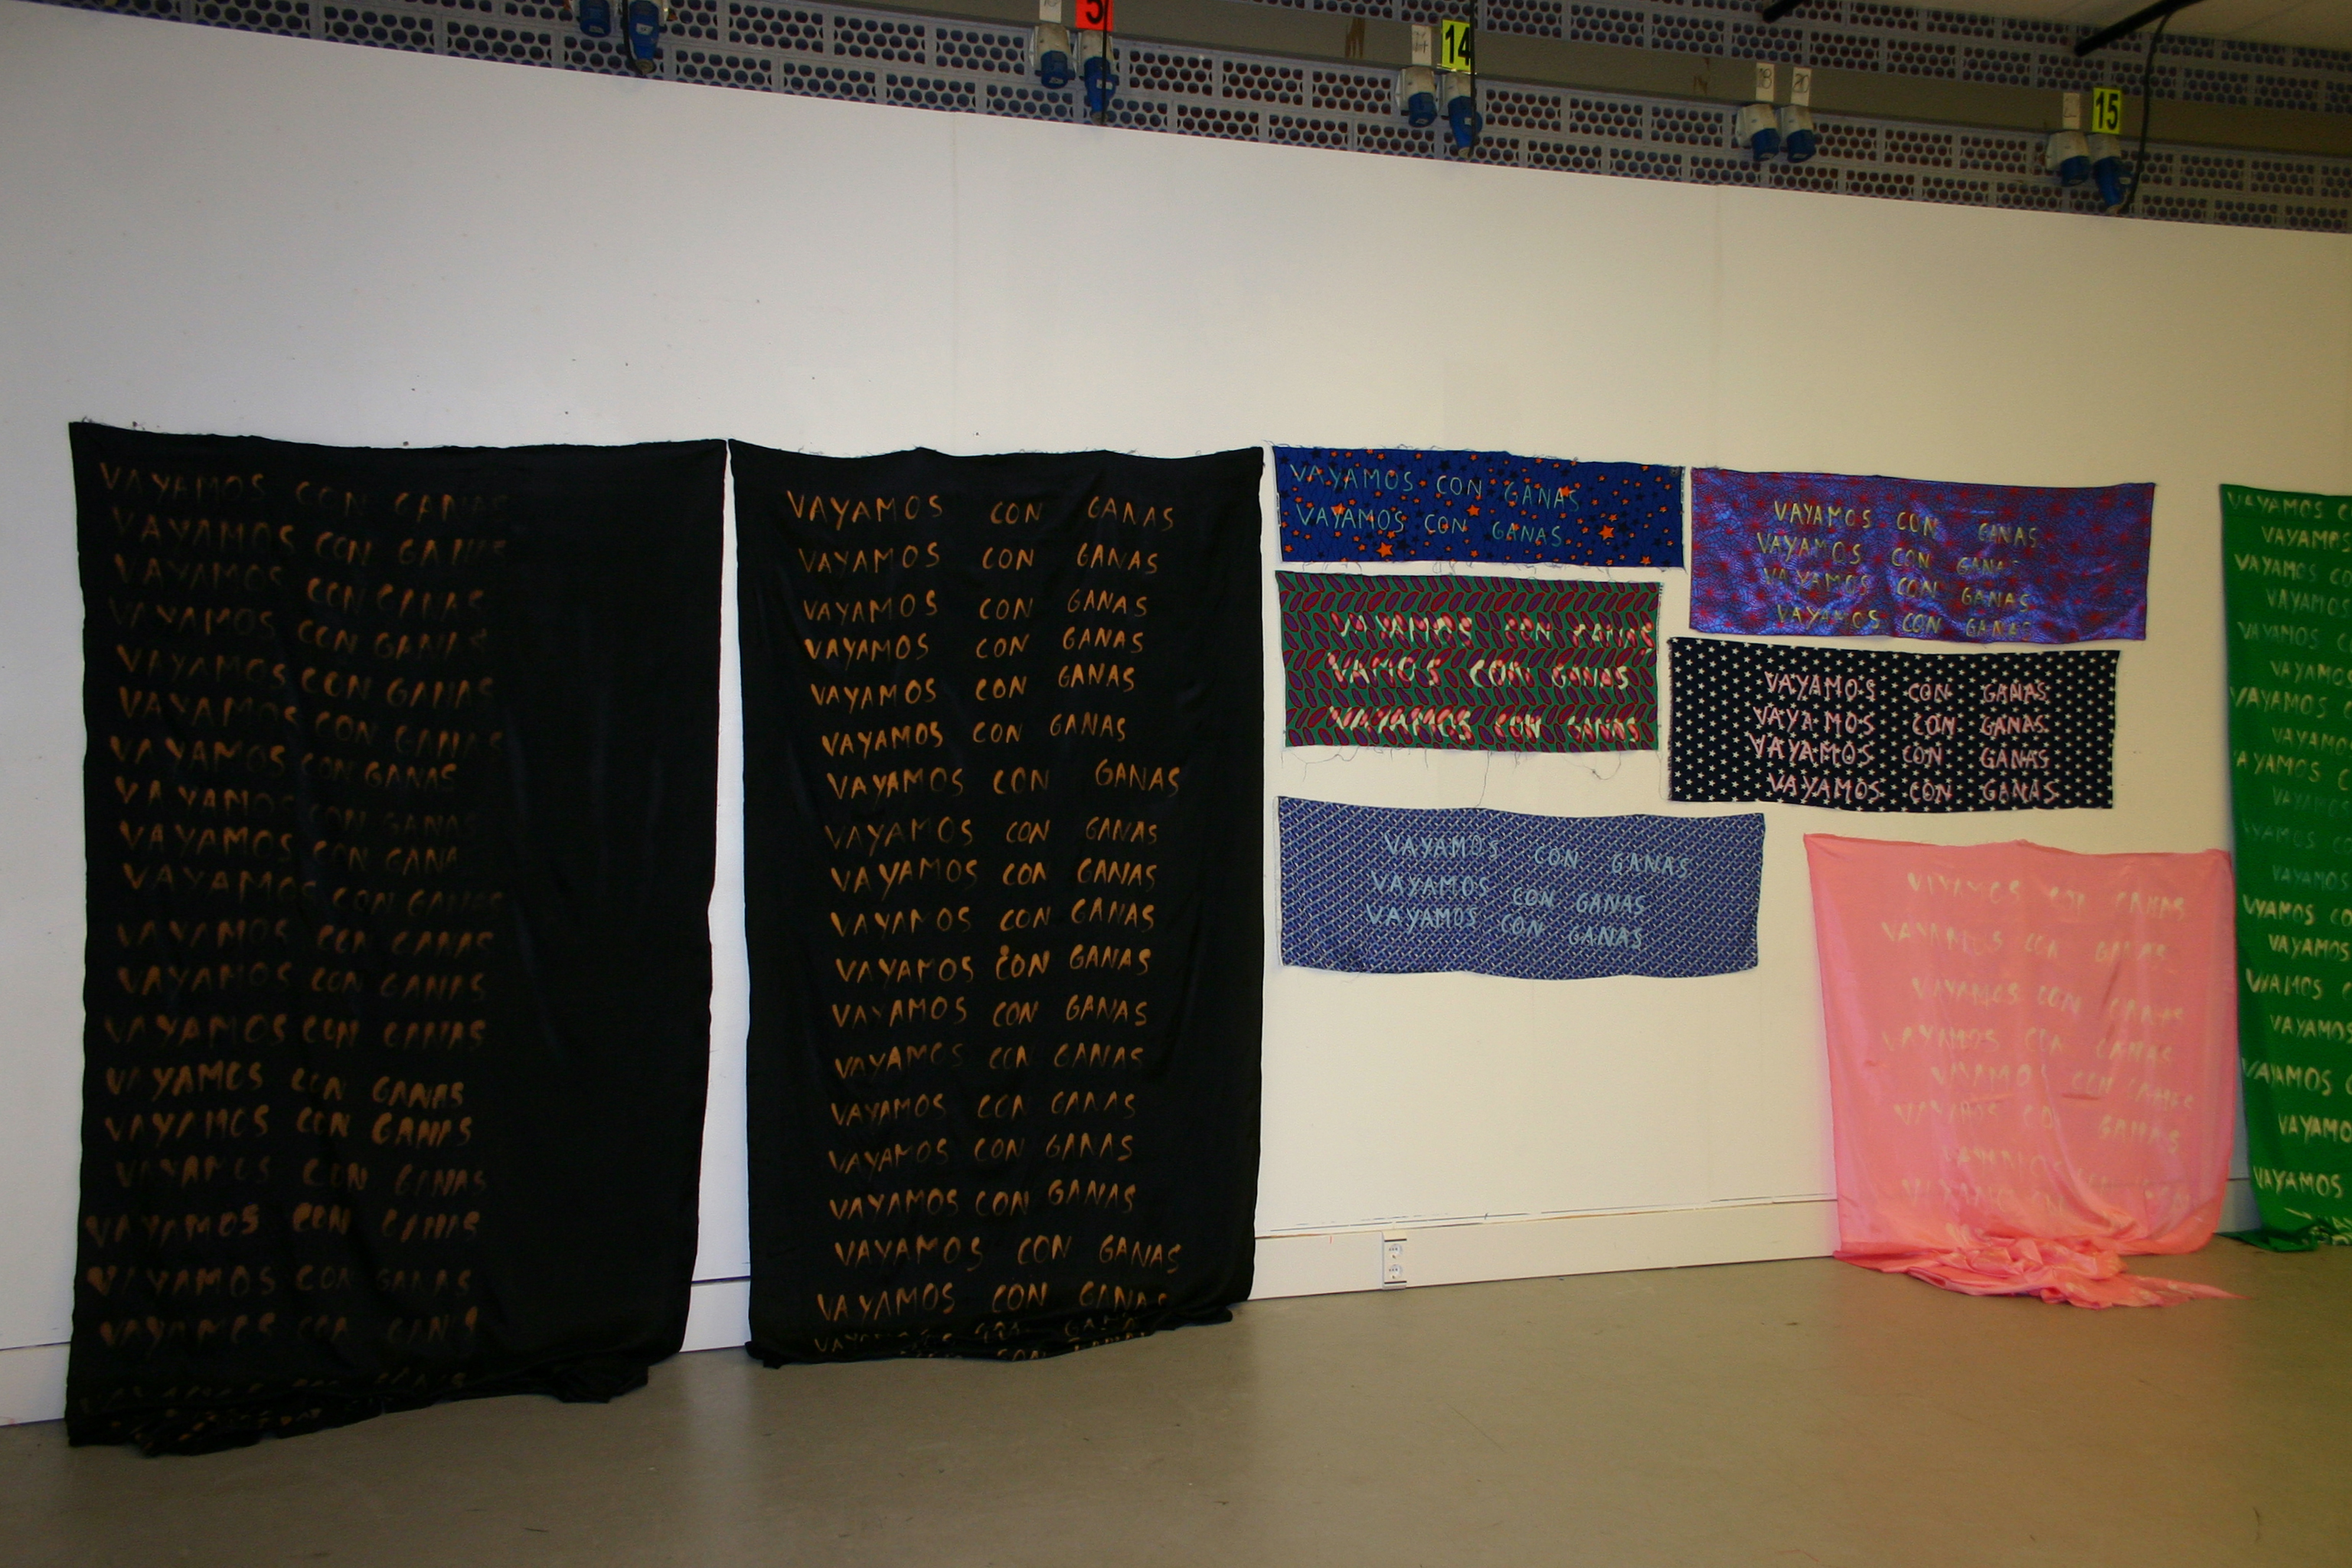 5
14
18 20
15
VAYAMOS CON GANAS
VAYAMOS CON GANAS
VAYAMOS CON CANAS
VAYAMOS CON GANAS
VAYAMOS CON GANAS
VAYAMOS CON GANAS
VAYAMOS CON GANAS
VAYAMOS CON GANAS
VAYAMOS CON GANA
VAYAMOS CON GANAS
VAYAMOS CON CANAS
VAYAMOS CON GANAS
VAYAMOS CON CANAS
VAYAMOS CON GANAS
VAYAMOS CON GANAS
VAYAMOS CON GANAS
VAYAMOS CON CANAS
VAYAMOS CON GANAS
VAYAMOS CON GANS
VAYAMOS CON GANAS
VAYAMOS CON GANAS
VAYAMOS CON GANAS
VAYAMOS CON GANAS
VAYAMOS CON GANAS
VAYAMOS CON GANAS
VAYAMOS CON GANAS
VAYAMOS CON GANAS
VAYAMOS CON CANAS
VAYAMOS CON GANAS
VAYAMOS CON GANAS
VAYAMOS CON GANAS
VAYAMOS CON GANAS
VAYAMOS CON GANAS
VAYAMOS CON GANAS
VAYAMOS CON GANAS
VAYAMOS CON GANAS
VAYAMOS CON GANAS
VAYAMOS CON GANAS
VAYAMOS CON GANAS
VAYAMOS CON GANAS
VAYAMOS CON GANAS
VAMOS CON GANAS
VAYAMOS CON GANAS
VAYAMOS CON GANAS
VAYAMOS CON GANAS
VAYAMOS CON GANAS
VAYAMOS CON GANAS
VAYAMOS CON GANAS
VAYAMOS CON GANAS
VAYAMOS CON GANAS
VAYAMOS CON GANAS
VAYAMOS CON GANAS
VAYAMOS CON GANAS
VAYAMOS CON GANAS
VAYAMOS CON GANAS
VAYAMOS CON GANAS
VAYAMOS CON GANAS
VAYAMOS CON GANAS
VAYAMOS CON GANAS
VAYAMOS CON GANAS
VAYAMOS CON GANAS
VAYAMOS
VAYAMOS
VAYAMOS
VAYAMO
VAYAMOS
VAYAMO
VAYAMOS
VAYAMO
VAYAMOS
VAYAMO
VAYAMOS
VAYAMOS
VYAMOS
VAYAMOS
VAYAMOS
VAYAMOS
VAYAMOS
VAYAMO
VAYAMOS